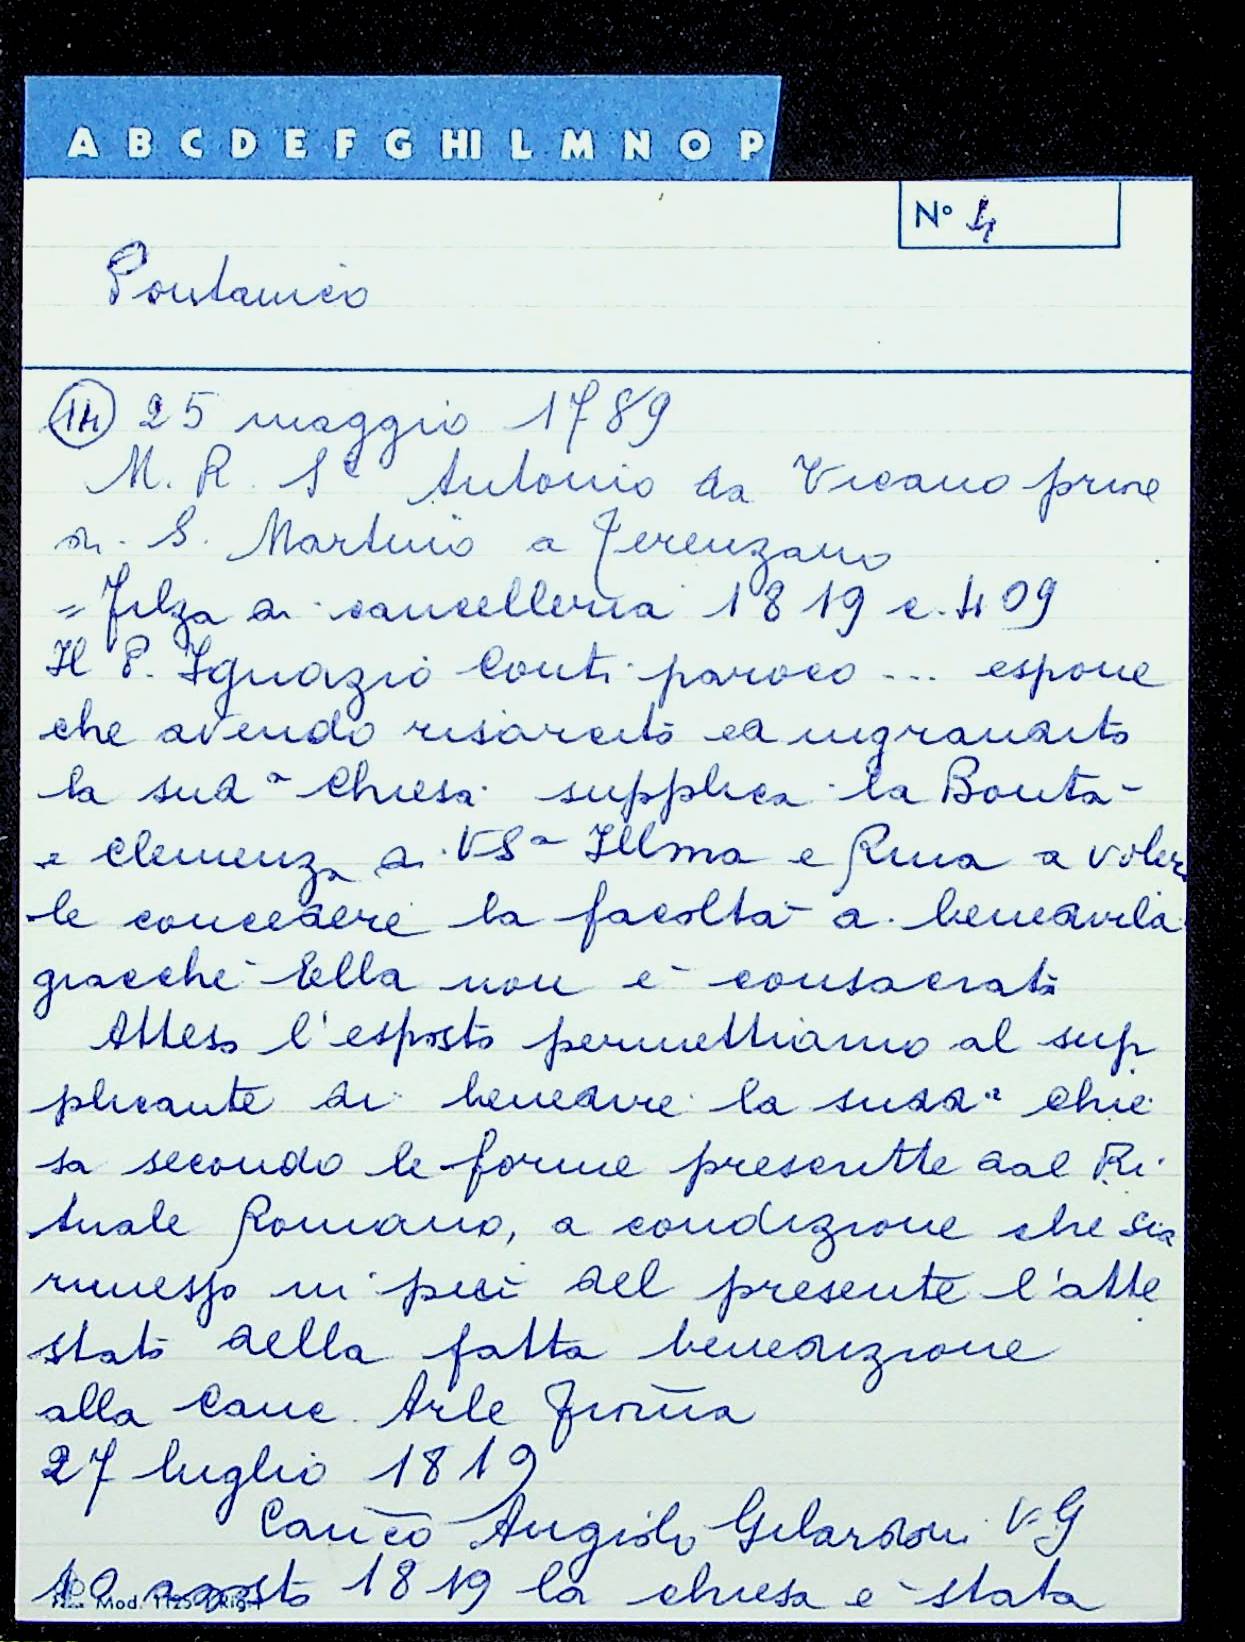 A B C D E F G HI L M N O P
N° 4
Pontanico
14 25 maggio 1789
M. R. Sr Antonio da Vicano priore
di S. Martino a Terenzano
= Filza di cancelleria 1819 c. 409
Il P. Ignazio Conti paroco ... espone
che avendo risarcito ed ingrandito
la sudª Chiesa supplica la Bontà
e clemenza di VSª Illma e Rma a voler
le concedere la facoltà di benedirla
giacché Ella non è consacrata
Atteso l'esposto permettiamo al sup
plicante di benedire la suddª chie
sa secondo le forme prescritte dal Ri
tuale Romano, a condizione che sia
rimesso in piei del presente l'atte
stato della fatta benedizione
alla Canc. Arle Fiorña
27 luglio 1819
Canco Angiolo Gilardoni VG
10 agosto 1819 la chiesa è stata
Mod. 1125